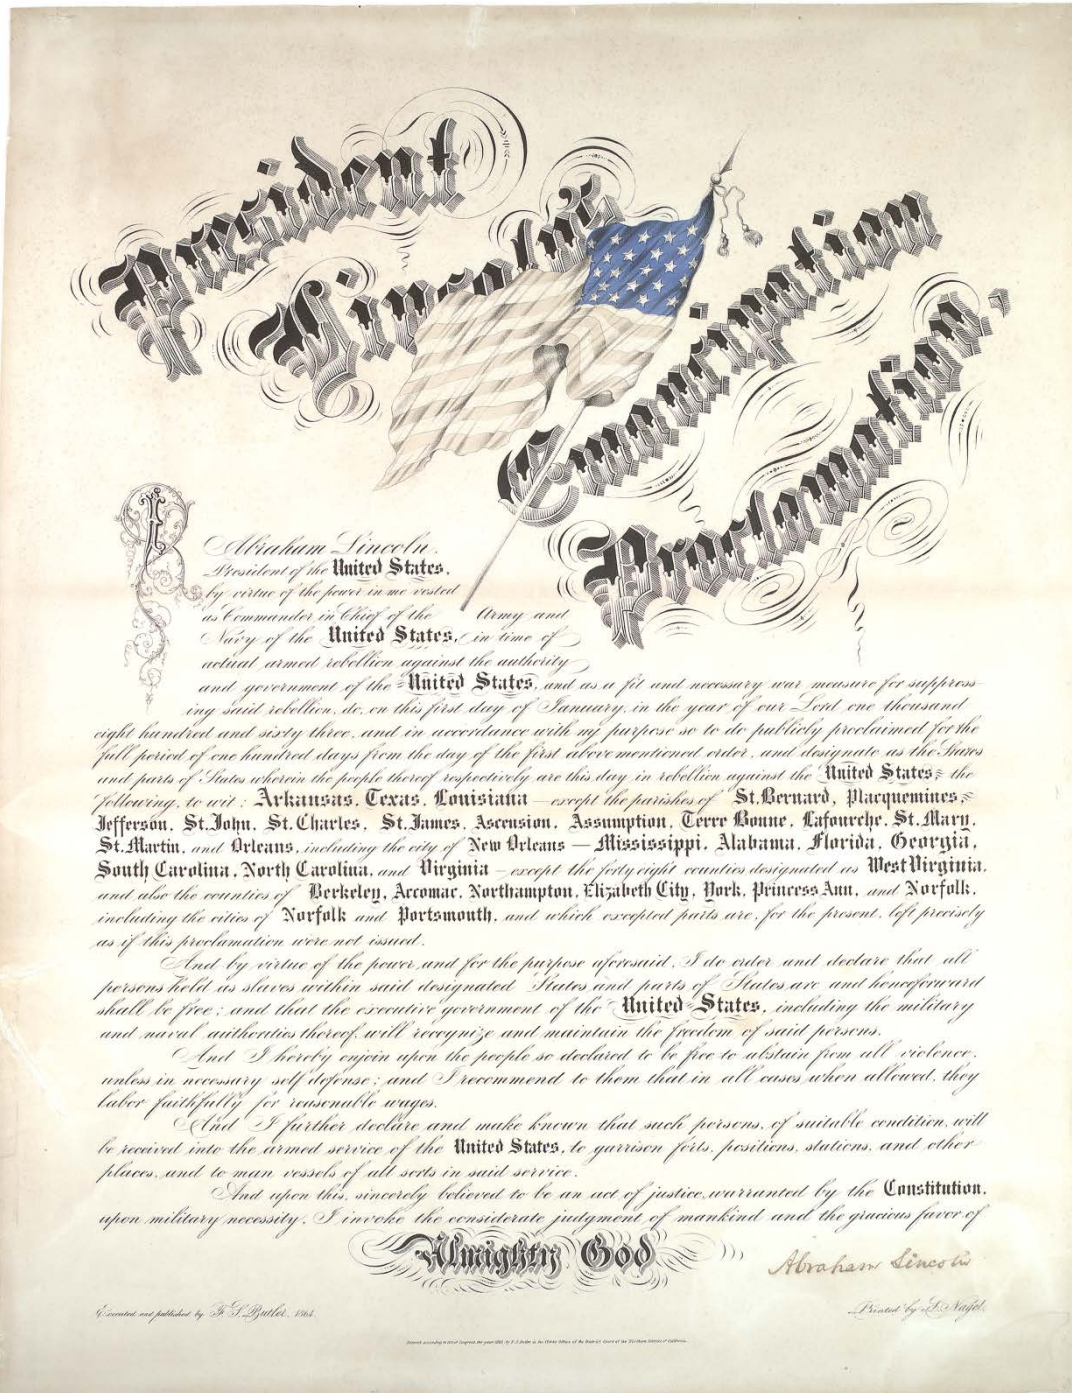 President
Lincoln's
Emancipation
Proclamation.
I Abraham Lincoln,
President of the United States,
by virtue of the power in me vested
as Commander in Chief of the Army and
Navy of the United States, in time of
actual armed rebellion against the authority
and government of the United States, and as a fit and necessary war measure for suppress-
ing said rebellion, do, on this first day of January, in the year of our Lord one thousand
eight hundred and sixty three, and in accordance with my purpose so to do publicly proclaimed for the
full period of one hundred days from the day of the first above mentioned order, and designate as the States
and parts of States wherein the people thereof respectively are this day in rebellion against the United States, the
following, to wit: Arkansas, Texas, Louisiana — except the parishes of St. Bernard, Placquemines,
Jefferson, St. John, St. Charles, St. James, Ascension, Assumption, Terre Bonne, Lafourche, St. Mary,
St. Martin, and Orleans, including the city of New Orleans — Mississippi, Alabama, Florida, Georgia,
South Carolina, North Carolina, and Virginia — except the forty eight counties designated as West Virginia,
and also the counties of Berkeley, Accomac, Northampton, Elizabeth City, York, Princess Ann, and Norfolk,
including the cities of Norfolk and Portsmouth, and which excepted parts are, for the present, left precisely
as if this proclamation were not issued.
And by virtue of the power, and for the purpose aforesaid, I do order and declare that all
persons held as slaves within said designated States and parts of States are and henceforward
shall be free; and that the executive government of the United States, including the military
and naval authorities thereof, will recognize and maintain the freedom of said persons.
And I hereby enjoin upon the people so declared to be free to abstain from all violence,
unless in necessary self defense; and I recommend to them that in all cases when allowed, they
labor faithfully for reasonable wages.
And I further declare and make known that such persons, of suitable condition, will
be received into the armed service of the United States, to garrison forts, positions, stations, and other
places, and to man vessels of all sorts in said service.
And upon this, sincerely believed to be an act of justice, warranted by the Constitution,
upon military necessity, I invoke the considerate judgment of mankind and the gracious favor of
Almighty God
Abraham Lincoln
Executed and published by F. S. Butler, 1864.
Printed by L. Nagel.
Entered according to Act of Congress the year 1863, by F. S. Butler in the Clerks Office of the District Court of the Northern District of California.